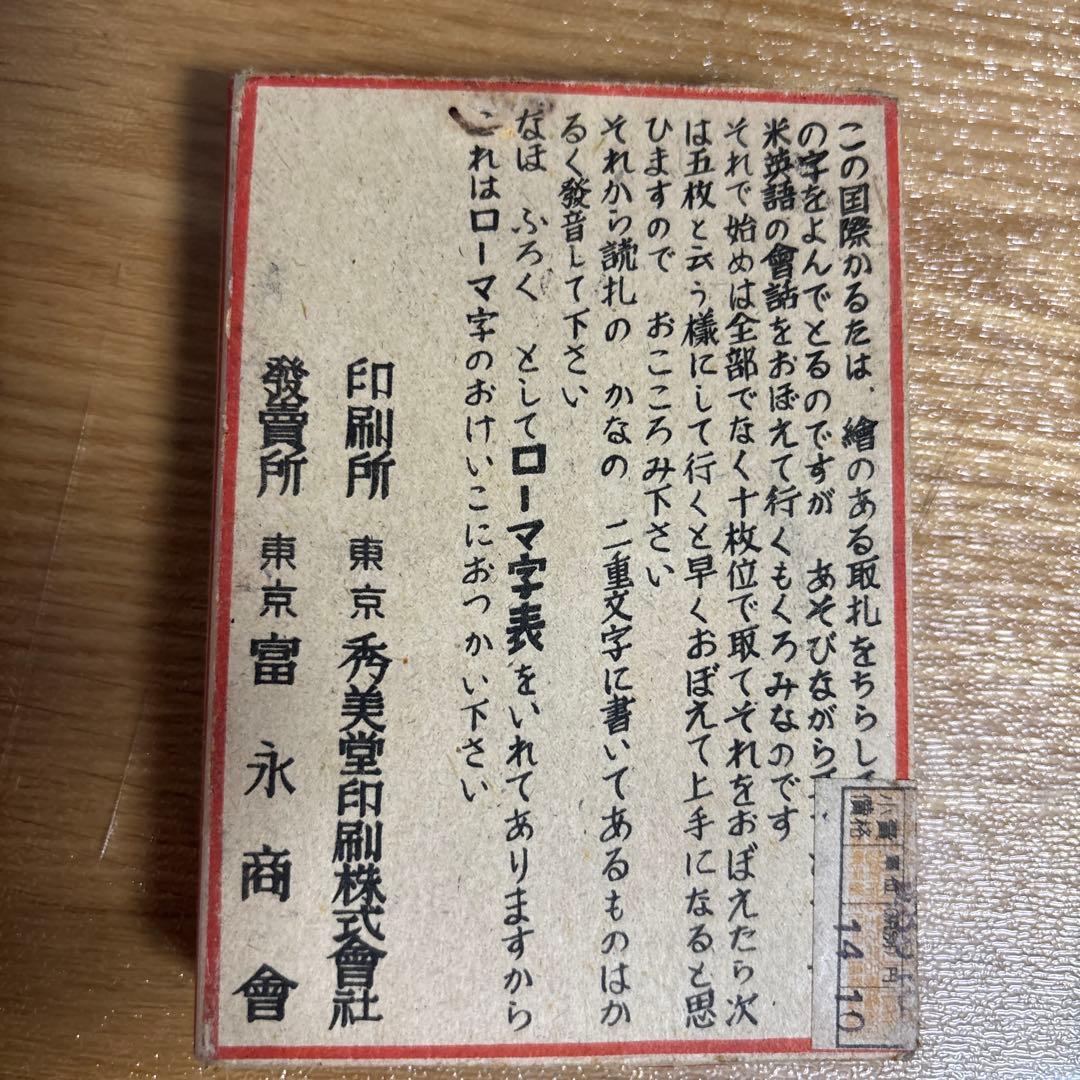 この国際かるたは、繪のある取札をちらして
の字をよんでとるのですが あそびながら
米英語の會話をおぼえて行くもくろみなのです
それで始めは全部でなく十枚位で取てそれをおぼえたら次
は五枚と云う様にして行くと早くおぼえて上手になると思
ひますので おこころみ下さい
それから読札の かなの 二重文字に書いてあるものはか
るく發音して下さい
なほ ふろく としてローマ字表をいれてありますから
これはローマ字のおけいこにおつかい下さい
印刷所 東京 秀美堂印刷株式會社
發賣所 東京 富永商會
14 10